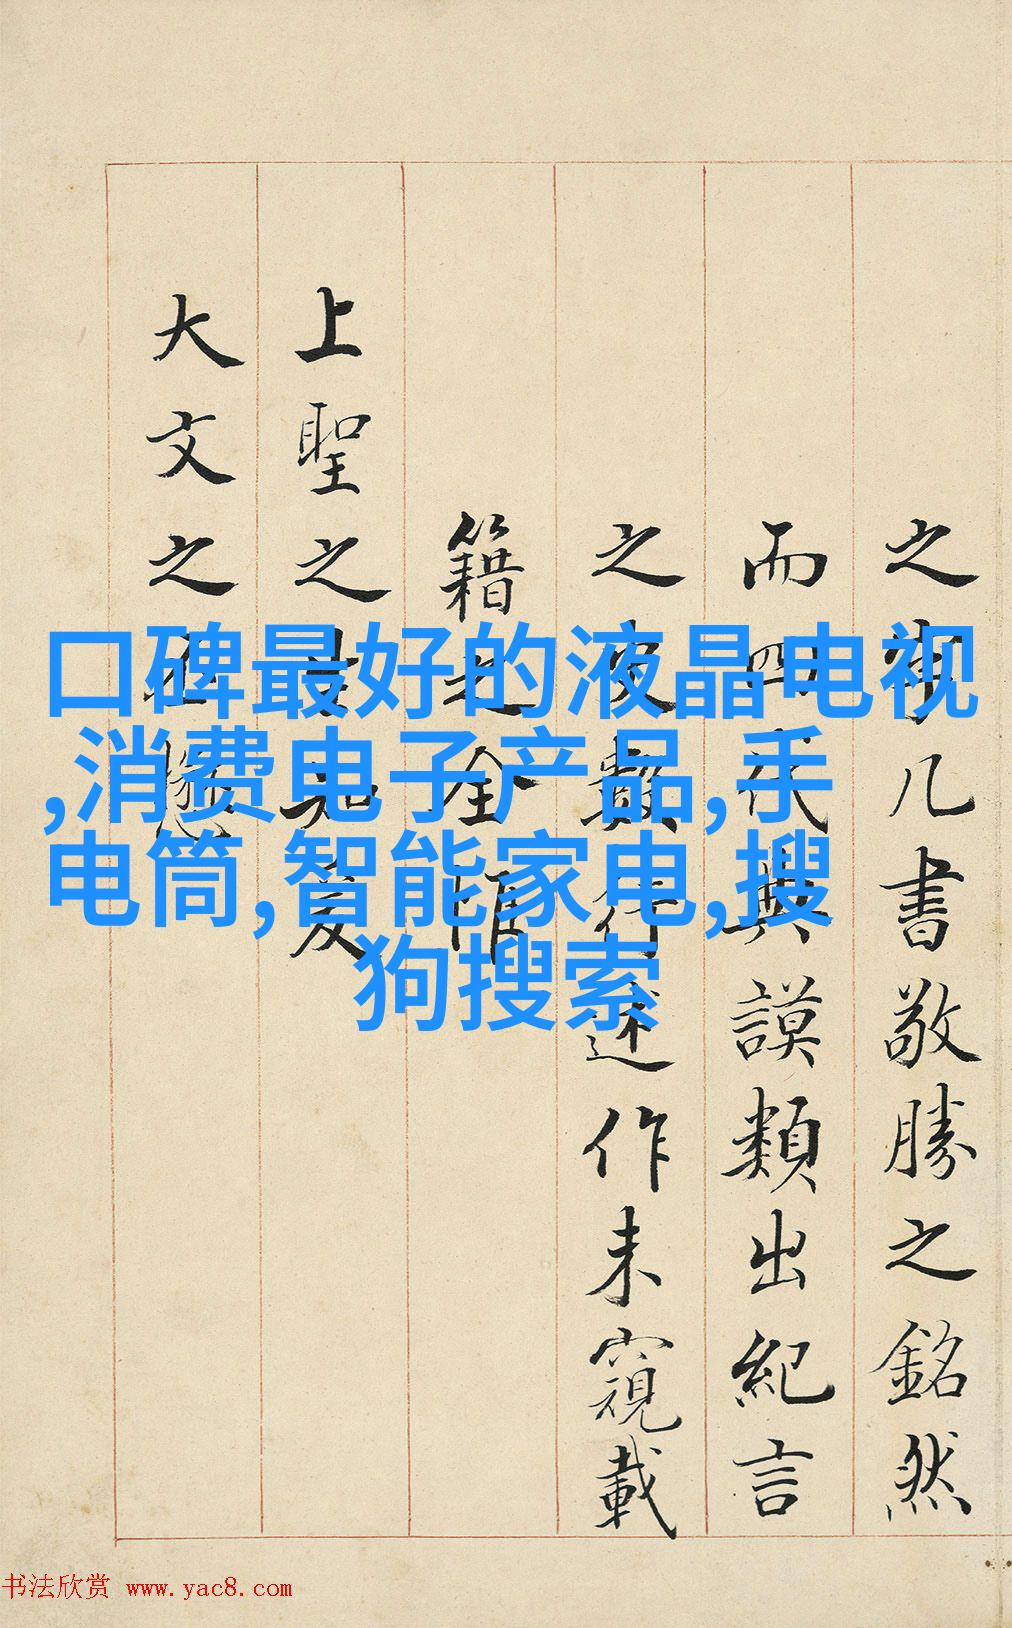 口碑最好的液晶电视
,消费电子产品,手
电筒,智能家电,搜
狗搜索
之几書敬勝之銘然
而四代典謨類出紀言
之史數行述作未窺載
籍之全惟
上聖之
大文之
书法欣赏 www.yac8.com